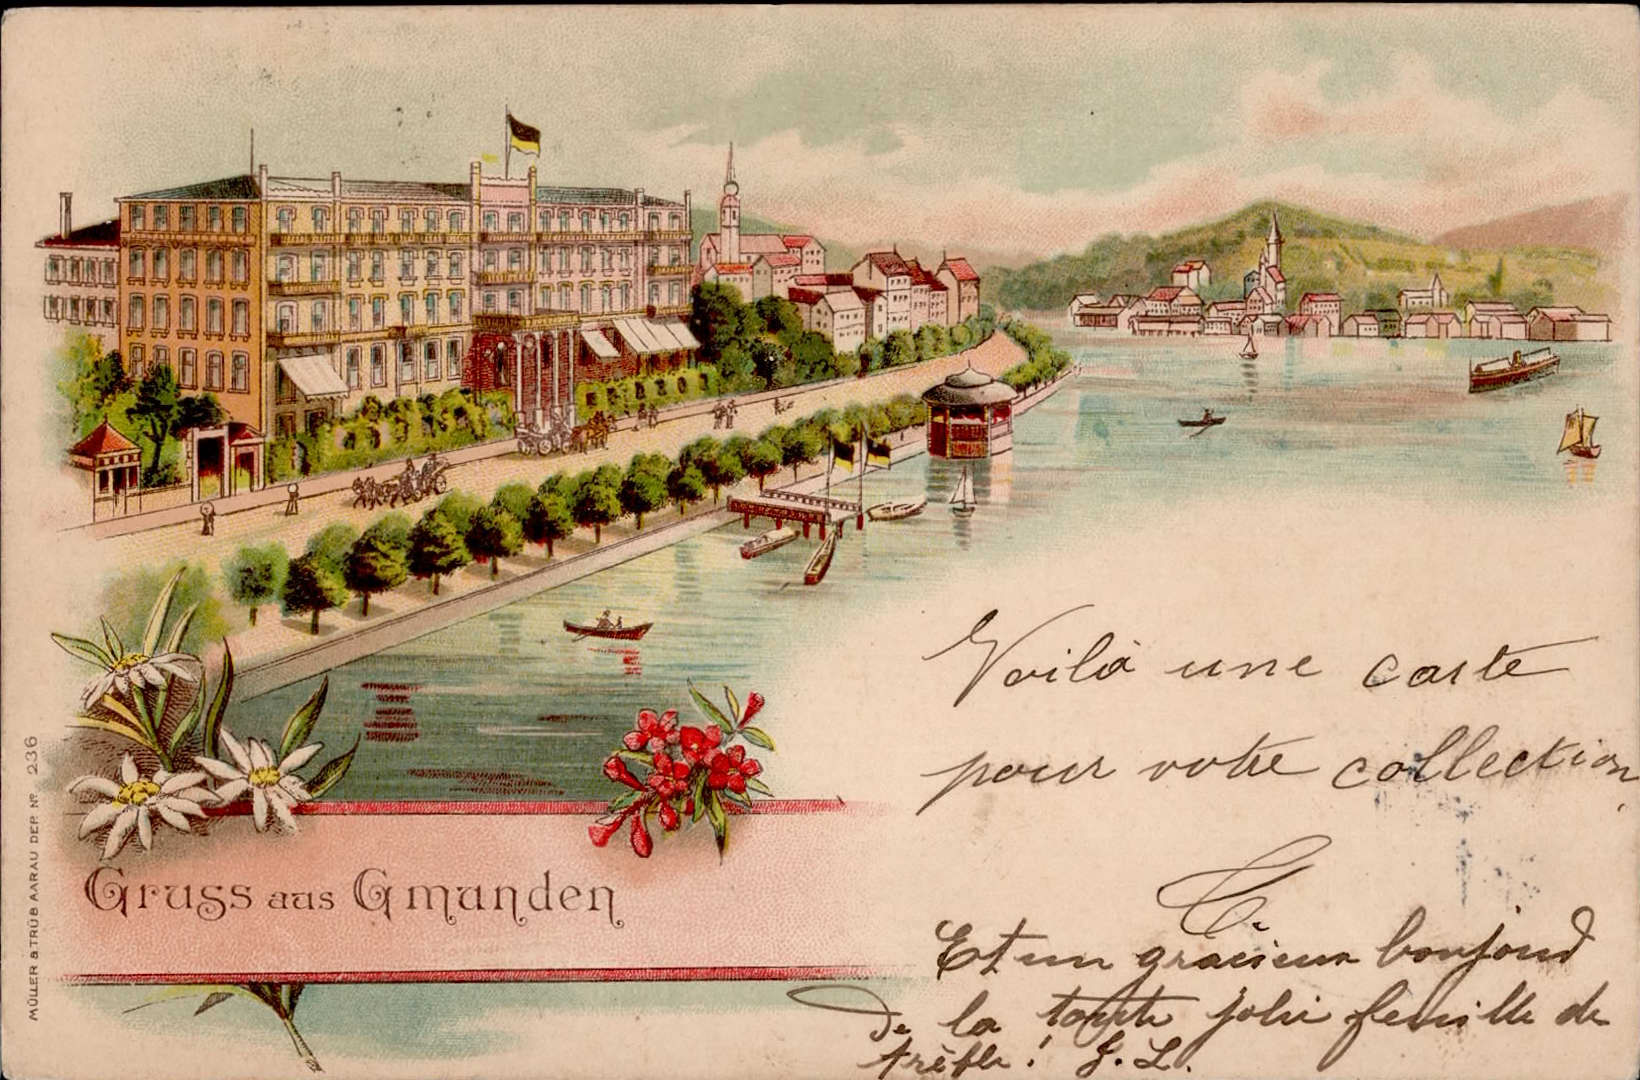 Gruss aus Gmunden
MÜLLER & TRÜB AARAU DEP. Nº 236
Voilà une carte
pour votre collection
Et un gracieux bonjour
de la toute jolie feuille de
trèfle! J. L.